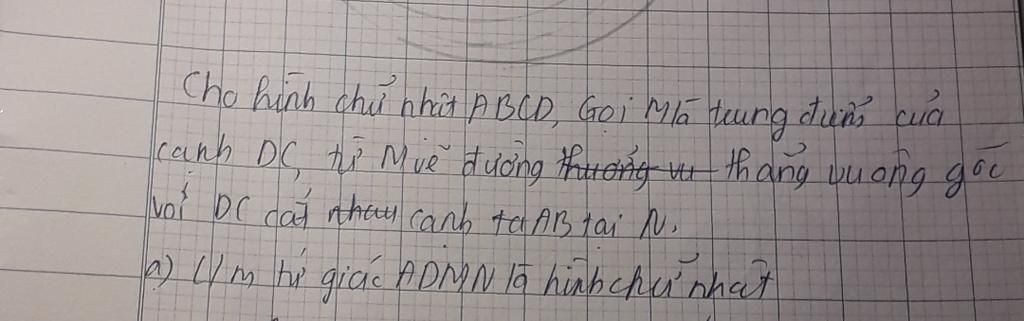 Cho hình chữ nhật ABCD, Gọi M là trung điểm của
cạnh DC, từ M vẽ đường thường vu thẳng vuông góc
với DC cắt nhau cạnh ta AB tại N.
a) C/m tứ giác ADMN là hình chữ nhật